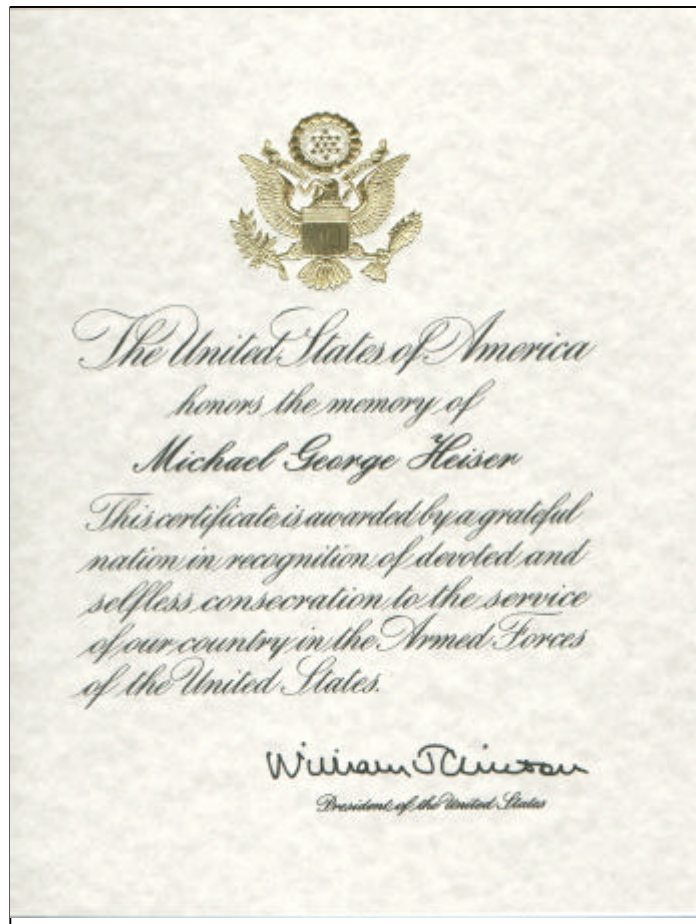 The United States of America
honors the memory of
Michael George Heiser
This certificate is awarded by a grateful
nation in recognition of devoted and
selfless consecration to the service
of our country in the Armed Forces
of the United States.
William J Clinton
President of the United States